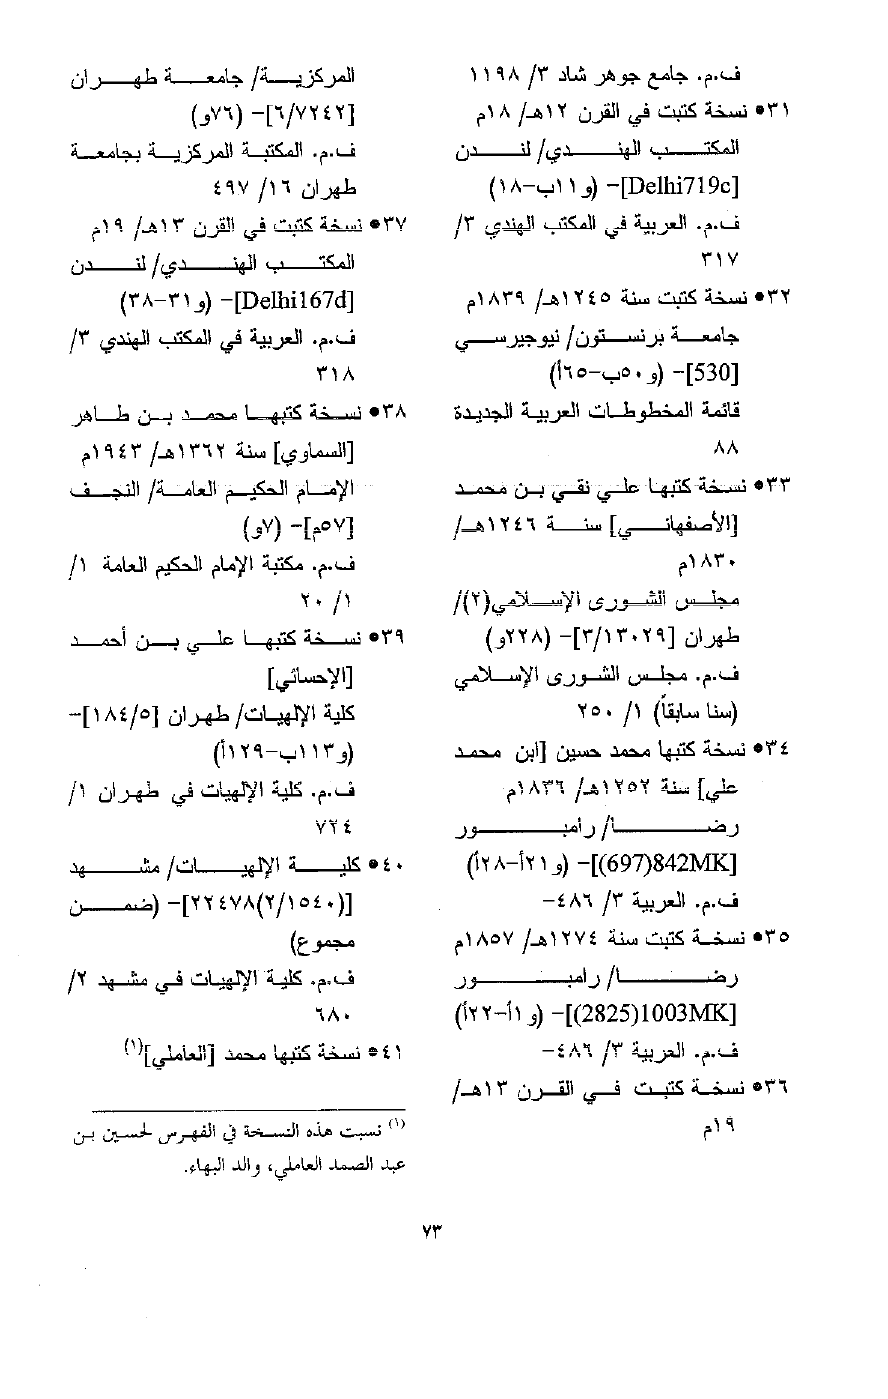 ف.م. جامع جوهر شاد ٣/ ١١٩٨
٣١• نسخة كتبت في القرن ١٢هـ/ ١٨م
المكتب الهندي/ لندن
[Delhi719c]- (و١١ب-١٨)
ف.م. العربية في المكتب الهندي ٣/
٣١٧
٣٢• نسخة كتبت سنة ١٢٤٥هـ/ ١٨٣٩م
جامعة برنستون/ نيوجيرسي
[530]- (و٥٠ب-٦٥أ)
قائمة المخطوطات العربية الجديدة
٨٨
٣٣• نسخة كتبها علي نقي بن محمد
[الأصفهاني] سنة ١٢٤٦هـ/
١٨٣٠م
مجلس الشورى الإسلامي(٢)/
طهران [٣/١٣٠٢٩]- (٢٢٨و)
ف.م. مجلس الشورى الإسلامي
(سنا سابقاً) ١/ ٢٥٠
٣٤• نسخة كتبها محمد حسين [ابن محمد
علي] سنة ١٢٥٢هـ/ ١٨٣٦م
رضا/ رامبور
[842MK(697)]- (و٢١أ-٢٨أ)
ف.م. العربية ٣/ ٤٨٦-
٣٥• نسخة كتبت سنة ١٢٧٤هـ/ ١٨٥٧م
رضا/ رامبور
[1003MK(2825)]- (و١أ-٢٢أ)
ف.م. العربية ٣/ ٤٨٦-
٣٦• نسخة كتبت في القرن ١٣هـ/
١٩م
المركزية/ جامعة طهران
[٦/٧٢٤٢]- (٧٦و)
ف.م. المكتبة المركزية بجامعة
طهران ١٦/ ٤٩٧
٣٧• نسخة كتبت في القرن ١٣هـ/ ١٩م
المكتب الهندي/ لندن
[Delhi167d]- (و٣١-٣٨)
ف.م. العربية في المكتب الهندي ٣/
٣١٨
٣٨• نسخة كتبها محمد بن طاهر
[السماوي] سنة ١٣٦٢هـ/ ١٩٤٣م
الإمام الحكيم العامة/ النجف
[٥٧م]- (٧و)
ف.م. مكتبة الإمام الحكيم العامة ١/
١/ ٢٠
٣٩• نسخة كتبها علي بن أحمد
[الإحسائي]
كلية الإلهيات/ طهران [١٨٤/٥]-
(و١١٣ب-١٢٩أ)
ف.م. كلية الإلهيات في طهران ١/
٧٢٤
٤٠• كلية الإلهيات/ مشهد
[٢٢٤٧٨(٢/١٥٤٠)]- (ضمن
مجموع)
ف.م. كلية الإلهيات في مشهد ٢/
٦٨٠
٤١• نسخة كتبها محمد [العاملي](١)
(١) نسبت هذه النسخة في الفهرس لحسين بن
عبد الصمد العاملي، والد البهاء.
٧٣